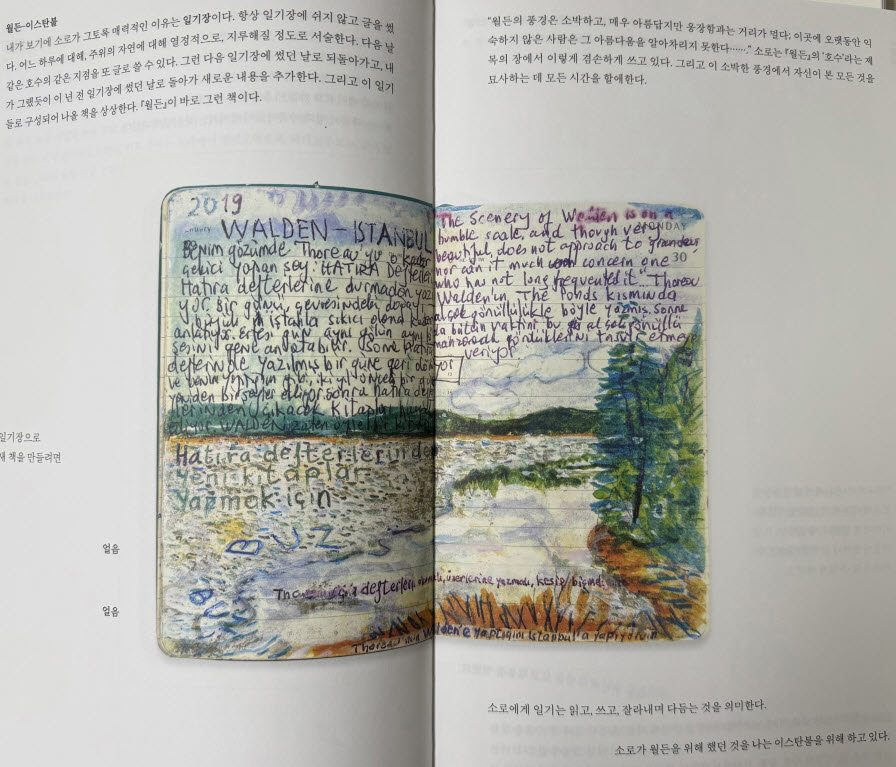 월든-이스탄불
내가 보기에 소로가 그토록 매력적인 이유는 일기장이다. 항상 일기장에 쉬지 않고 글을 썼
다. 어느 하루에 대해, 주위의 자연에 대해 열정적으로, 지루해질 정도로 서술한다. 다음 날
같은 호수의 같은 지점을 또 글로 쓸 수 있다. 그런 다음 일기장에 썼던 날로 되돌아가고, 내
가 그랬듯이 이 년 전 일기장에 썼던 날로 돌아가 새로운 내용을 추가한다. 그리고 이 일기
들로 구성되어 나올 책을 상상한다. 『월든』이 바로 그런 책이다.
“월든의 풍경은 소박하고, 매우 아름답지만 웅장함과는 거리가 멀다; 이곳에 오랫동안 익
숙하지 않은 사람은 그 아름다움을 알아차리지 못한다…….” 소로는 『월든』의 ‘호수’라는 제
목의 장에서 이렇게 겸손하게 쓰고 있다. 그리고 이 소박한 풍경에서 자신이 본 모든 것을
묘사하는 데 모든 시간을 할애한다.
2019
WALDEN - ISTANBUL
Benim gözümde Thoreau'yu o kadar
çekici yapan şey: HATIRA Defterleri
Hatıra defterlerine durmadan yazı
yor. Bir günü, çevresindeki doğayı
anlatıyor. Ertesi gün aynı gölün aynı
defterinde yazılmış bir güne geri dönüyor
ve benim yaptığım gibi iki yıl önceki bir güne
Hatıra defterlerinden
yeni kitaplar
yapmak için
BUZ
BUZ
The Scenery of Walden is on a
humble scale, and though very
beautiful, does not approach to grandeur,
nor can it much concern one
who has not long frequented it.." Thoreau
Walden'ın The Ponds kısmında
alçak gönüllülükle böyle yazmış. Sonra
da bütün vaktini bu alçakgönüllü
manzarada gördüklerini tasvir etmeye
veriyor
MONDAY
30
defterleri okumak, üzerlerine yazmak, kesip biçmek
Thoreau'nun Walden'e yaptığını Istanbul'a yapıyorum
일기장으로
새 책을 만들려면
얼음
얼음
소로에게 일기는 읽고, 쓰고, 잘라내며 다듬는 것을 의미한다.
소로가 월든을 위해 했던 것을 나는 이스탄불을 위해 하고 있다.